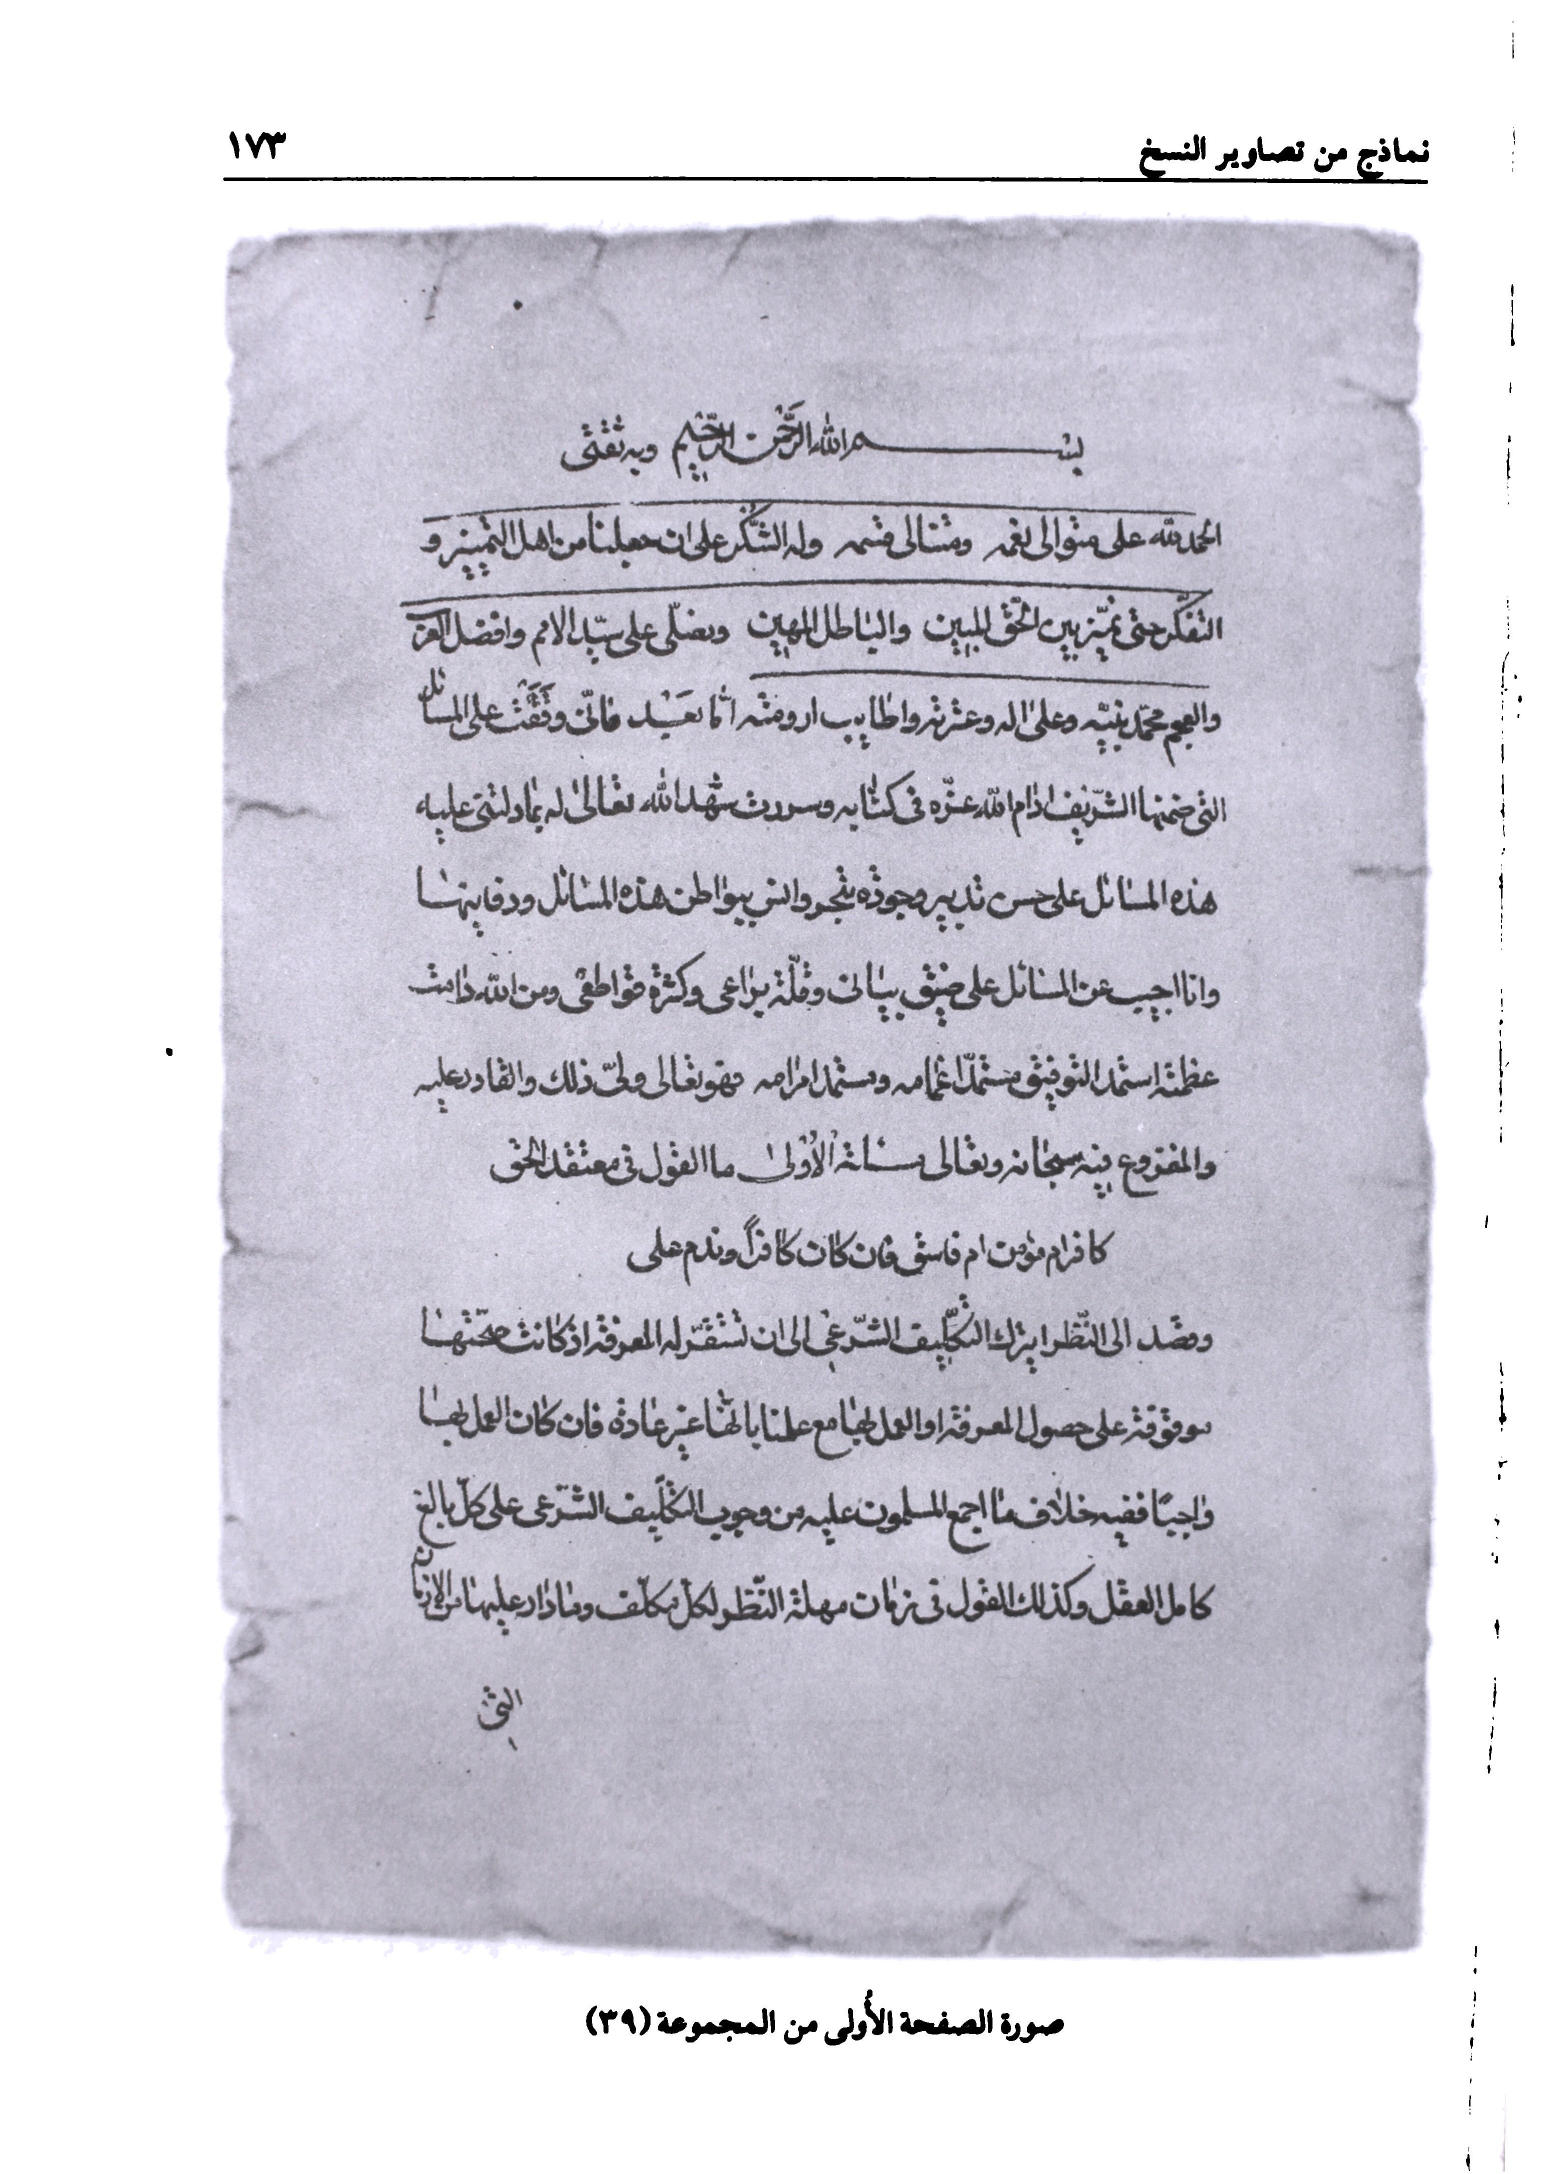 نماذج من تصاوير النسخ ١٧٣
بسم الله الرحمن الرحيم وبه ثقتي
الحمد لله على متوالى نعمه ومتتالى قسمه وله الشكر على ان جعلنا من اهل التمييز و
التفكر حتى نميز بين الحق المبين والباطل المهين ونصلّى على سيّد الامم وافضل العرب
والعجم محمّد نبيّه وعلى اله وعترته واطايب ارومته امّا بَعَد فانّى وقَفَت على المسائل
التى ضمنها الشّريف ادام الله عزّه فى كتابه وسررت شهد الله تعالىٰ له بما دلتنى عليه
هذه المسائل على حسن تدبير وجوده تبحر وانس ببواطن هذه المسائل ودفاينها
وانا اجيب عن المسائل على ضيق بيانى وقلّة يراعى وكثرة قواطعى ومن الله دامت
عظمته استمد التوفيق مستمدّا وهو تعالى ولىّ ذلك والقادر عليه
والمفزوع فيه سبحانه وتعالى مسئلة الاُولىٰ ما القول فى معتقد الحق
كافرام مؤمن ام فاسق فان كان كافراً وندم على
وقصد الى النّظر ايترك التكلّيف الشّرعى الى ان تستقرّ له المعرفة اذ كانت صحّتها
موقوفة على حصول المعرفة او العمل بها مع علمنا بانّها غير عادة فان كان العمل بها
واجبًا ففيه خلاف ما اجمع المسلمون عليه من وجوب التكلّيف الشّرعى على كلّ بالغ
كامل العقل وكذلك القول فى زمان مهلة النّظر لكلّ مكلّف وما دار عليها من الازمان
التى
صورة الصفحة الأُولى من المجموعة (٣٩)